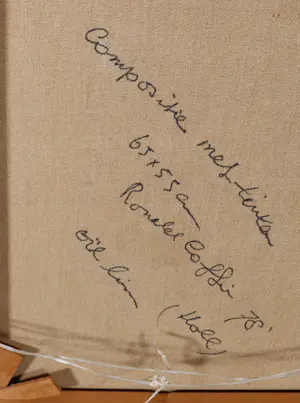 Compositie met tinten
65x55cm
Ronald Coffie 78'
oil lin (Holl)